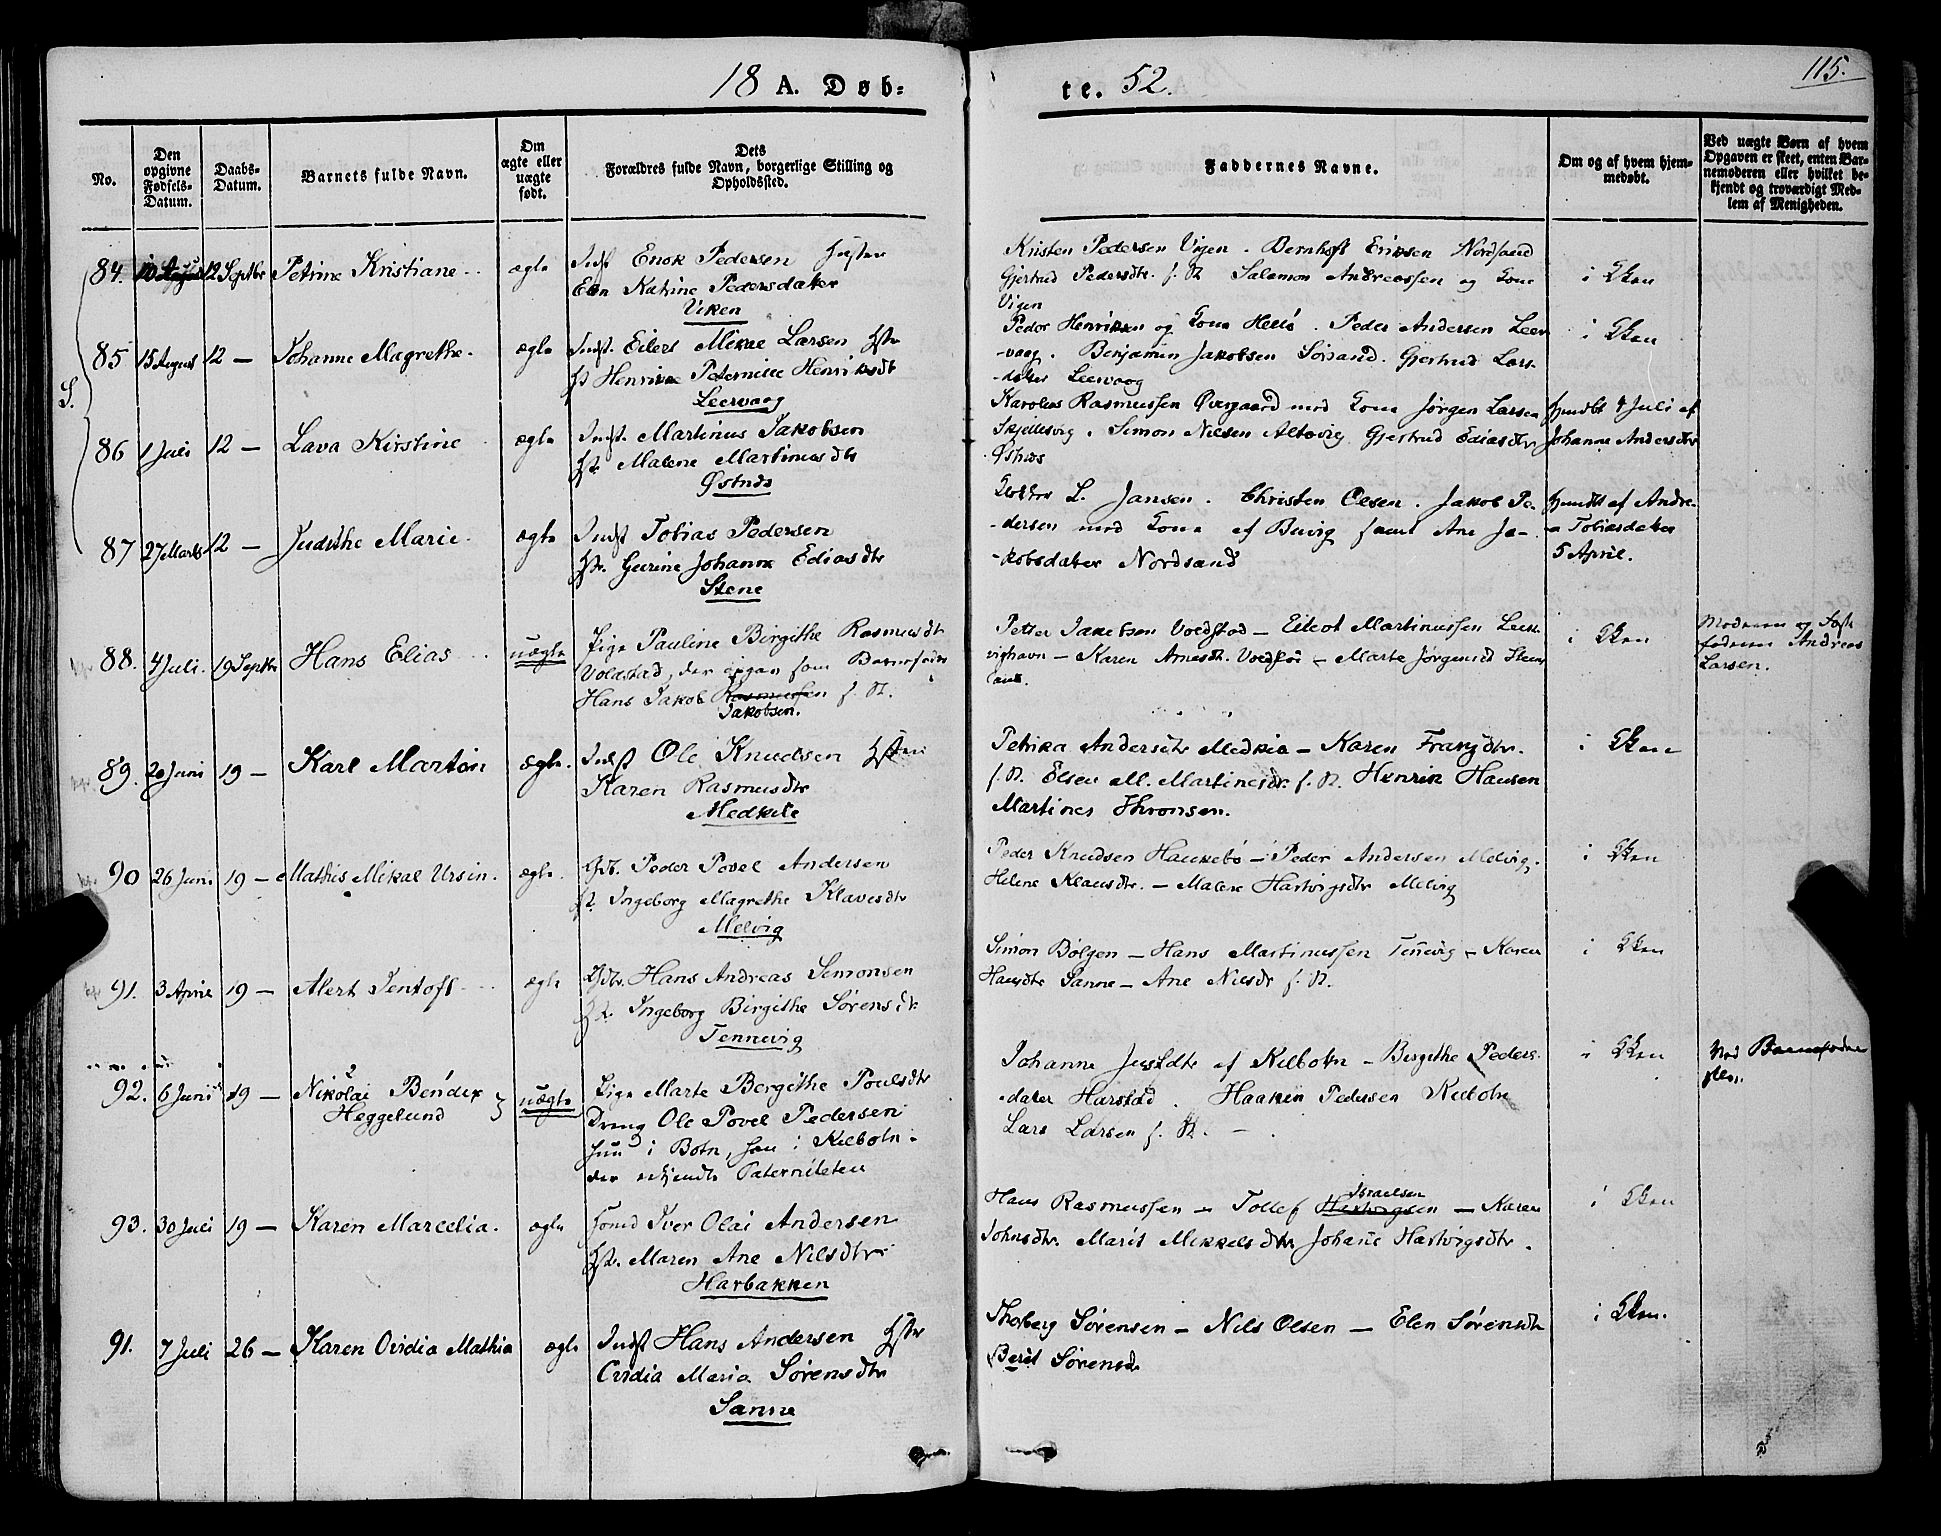 18 A. Døb-
te. 52.
115.
No.
Den opgivne Fødsels-Datum.
Daabs-Datum.
Barnets fulde Navn.
Om ægte eller uægte født.
Dets
Forældres fulde Navn, borgerlige Stilling og
Opholdssted.
Faddernes Navne.
Om og af hvem hjem-
medøbt.
Ved uægte Børn af hvem
Opgaven er skeet, enten Bar-
nemoderen eller hvilket be-
kjendt og troværdigt Med-
lem af Menigheden.
S.
84. 12 Septbr Petrine Kristiane ægte Indst Enok Pedersen Hustru
Elen Katrine Pedersdatter
Viken
Kristen Pedersen Vigen. Bernhoft Eriksen Nordsand
Gjertrud Pedersdtr. s. St. Salamon Andreassen og Kone
Vigen
i Kken
85 15 August 12 — Johanne Magrethe ægte Indst. Eilert Mikal Larsen Hstr
Henrikke Peternille Henriksdtr
Leervaag
Peder Henriksen og Kone Hellø. Peder Andersen Leer
-vaag. Benjamin Jakobsen Sørsand. Gjertrud Lars-
-datter Leervaag
i Kken
86 1 Juli 12 — Lava Kirstine ægte Indst. Martinus Jakobsen
Hst. Malene Martinusdtr
Østnes
Karolus Rasmussen Øvergaard med Kone Jørgen Larsen
Skjellesvig. Simon Nilsen Altevig Gjertrud Ediasdtr
Østnes
Hjmdbt 4 Juli af
Johanne Andersdtr
87 27 Marts 12 — Judithe Marie ægte Indst Tobias Pedersen
Hstr. Gurine Johanne Ediasdtr
Stene
Klokker L. Jansen. Christen Olsen. Jakob Pe-
-dersen med Kone af Buvig samt Ane Ja-
-kobsdatter Nordsand
Hjmdbt af Andre-
a Tobiasdatter
5 April.
88. 4 Juli. 19 Septbr Hans Elias uægte Pige Pauline Birgithe Rasmusdtr
Voldstad, der opgav som Barnefader
Hans Jakob Rasmussen s. St.
Jakobsen.
Petter Jakobsen Voldstad — Eilert Martinussen
vighavn — Karen Arnesdt. — Marte Jørgensd Steens
land.
i Kken
Moderen og Fost
faderen Andreas
Larsen.
89. 20 Juni 19 — Karl Martin ægte. Indst Ole Knudsen Hstru
Karen Rasmusdtr
Medkile
Petrika Andersdtr Medkila — Karen Frantzdtr.
s. St. Elsen M. Martinesdr. s. St. Henrik Hansen
Martines Thronsen.
i Kken
90 26 Juni 19 — Mathis Mikal Ursin. ægte. Gdb. Peder Povel Andersen
H. Ingeborg Magrethe Klavesdtr
Melvig
Peder Knudsen Haukebø — Peder Andersen Melvig,
Helene Klausdtr. — Malene Hartvigsdtr Melvig
i Kken
91. 3 April 19 — Alert Tentoft ægte Gdbr. Hans Andreas Simonsen
H. Ingeborg Birgithe Sørensdtr
Tennevig
Simon Bølgen — Hans Martinussen Tennevig — Karen
Hansdtr Sanne — Ane Nilsdr s. St.
i Kken
92. 6 Juni 19 — Nikolai Bendix
Heggelund
uægte Pige Marte Bergithe Poulsdtr
Dreng Ole Povel Pedersen
hun i Botn, han i Kilbotn
der erkjendte Paterniteten
Johanne af Kilbotn — Birgithe Peders-
-datter Harstad. Haaken Pedersen Kilbotn
Lars Larsen s. St.
i Kken
Ved Barnefader
93. 30 Juli 19 — Karen Marcelia. ægte Iver Olai Andersen
Hst. Maren Ane Nilsdtr
Harbakken
Hans Rasmussen — Tollef Hartvigsen — Karen
Israelsen
Johnsdtr. Marit Mikkelsdtr Johane Hartvigsdtr.
i Kken
91. 7 Juli 26 — Karen Ovidia Mathia ægte Indst Hans Andersen Hstr
Ovidia Maria Sørensdtr
Sanne
Thorberg Sørensen — Nils Olsen — Elen Sørensdtr
Berit Sørensd
i Kken.